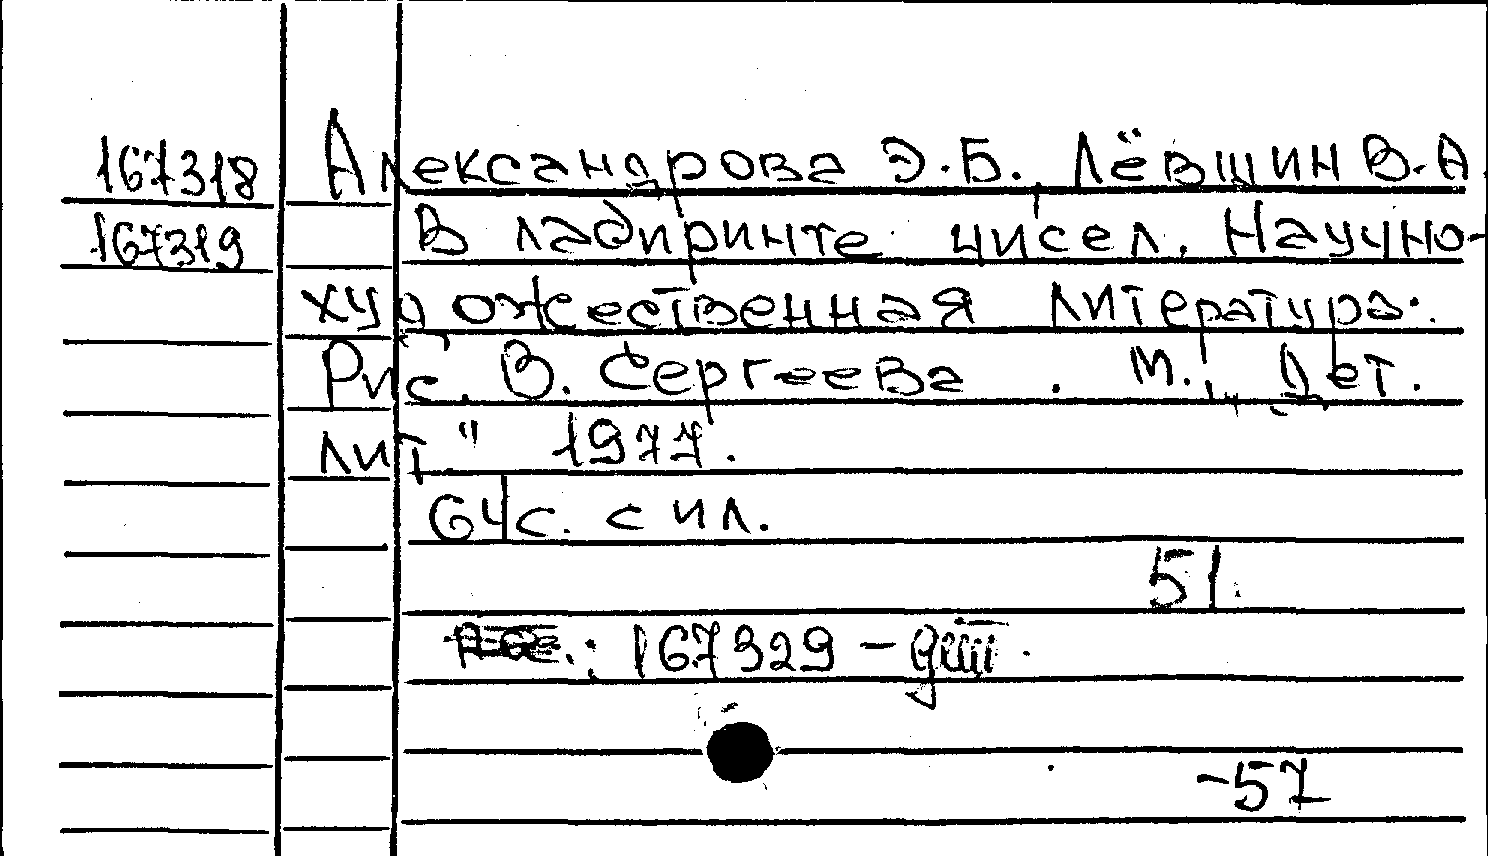 167318 Александрова Э.Б., Лёвшин В.А
167319 В лабиринте чисел. Научно-
художественная литература.
Рис. В. Сергеева. М., „Дет.
лит" 1977.
64с. с ил.
51.
: 167329 –
-57